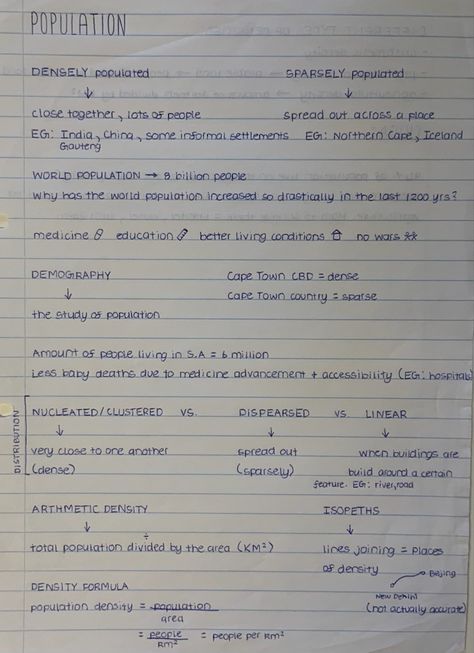 POPULATION
DENSELY populated
SPARSELY populated
↓
↓
close together, lots of people
spread out across a place
EG: India, China, some informal settlements
Gauteng
EG: Northern Cape, Iceland
WORLD POPULATION → 8 billion people
why has the world population increased so drastically in the last 1200 yrs?
medicine education better living conditions no wars
DEMOGRAPHY
Cape Town CBD = dense
↓
Cape Town country = sparse
the study of population
Amount of people living in S.A = 6 million
Less baby deaths due to medicine advancement + accessibility (EG: hospitals
DISTRIBUTION
NUCLEATED/CLUSTERED VS. DISPEARSED VS. LINEAR
↓
↓
↓
very close to one another
(dense)
spread out
(sparsely)
when buildings are
build around a certain
feature. EG: river, road
ARTHMETIC DENSITY
ISOPETHS
↓
↓
÷
total population divided by the area (KM²)
lines joining = places
of density
Beijing
New Dehli
(not actually accurate)
DENSITY FORMULA
population density = population
area
= people = people per km²
km²